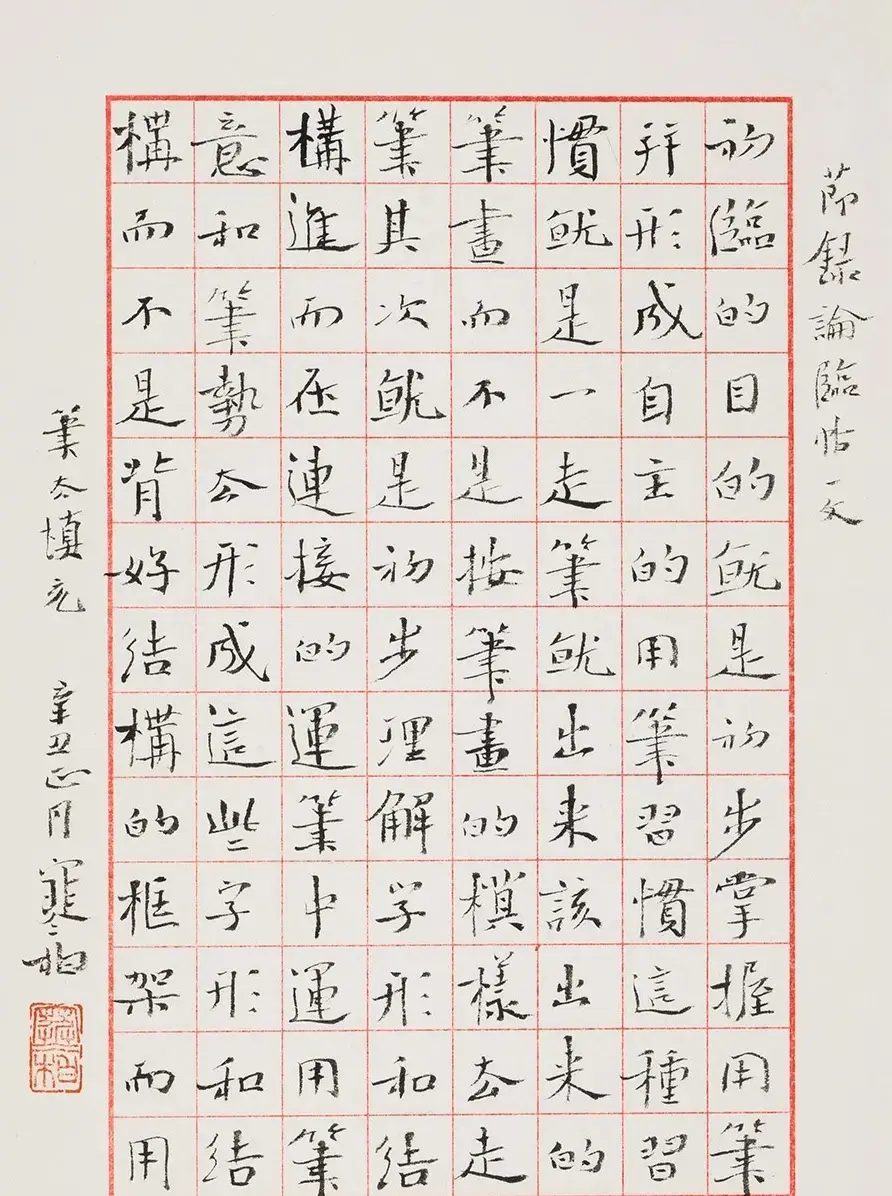 節錄論臨帖一文
初臨的目的就是初步掌握用筆
并形成自主的用筆習慣這種習
慣就是一走筆就出来該出来的
筆畫而不是按筆畫的模樣去走
筆其次就是初步理解字形和結
構進而在連接的運筆中運用筆
意和筆勢去形成這些字形和結
構而不是背好結構的框架而用
筆去填充 辛丑正月寒柏